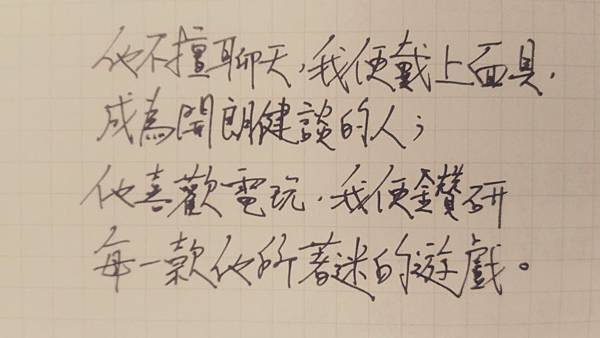 他不擅聊天，我便戴上面具，
成為開朗健談的人；
他喜歡電玩，我便鑽研
每一款他所著迷的遊戲。